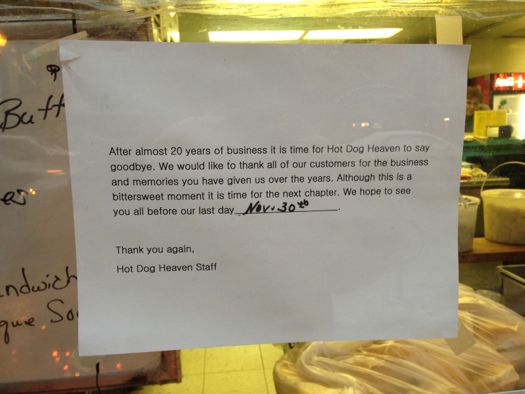 After almost 20 years of business it is time for Hot Dog Heaven to say
goodbye. We would like to thank all of our customers for the business
and memories you have given us over the years. Although this is a
bittersweet moment it is time for the next chapter. We hope to see
you all before our last day Nov. 30th.
Thank you again,
Hot Dog Heaven Staff